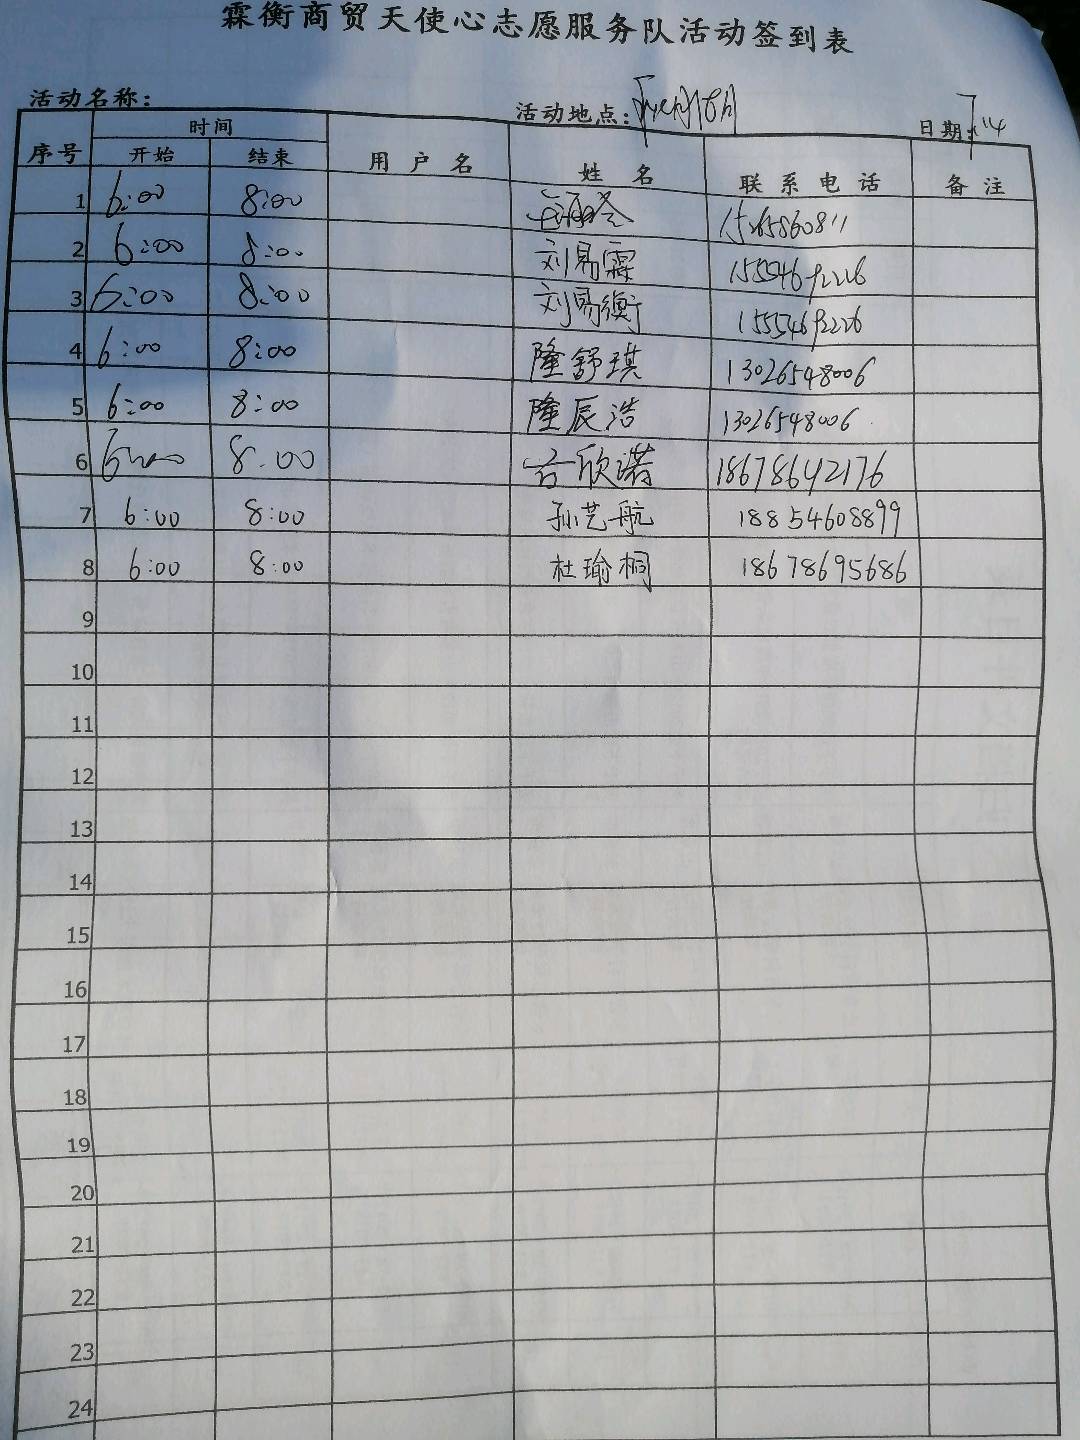 霖衡商贸天使心志愿服务队活动签到表
活动名称: 活动地点: 日期:
序号 时间 用户名 姓名 联系电话 备注
开始 结束
1 6:00 8:00
2 6:00 8:00 刘易霖
3 6:00 8:00 刘易衡
4 6:00 8:00 隆舒琪 13026548006
5 6:00 8:00 隆辰浩 13026548006
6 8:00 欣诺 18678642176
7 6:00 8:00 孙艺航 18854608899
8 6:00 8:00 杜瑜桐 18678695686
9
10
11
12
13
14
15
16
17
18
19
20
21
22
23
24